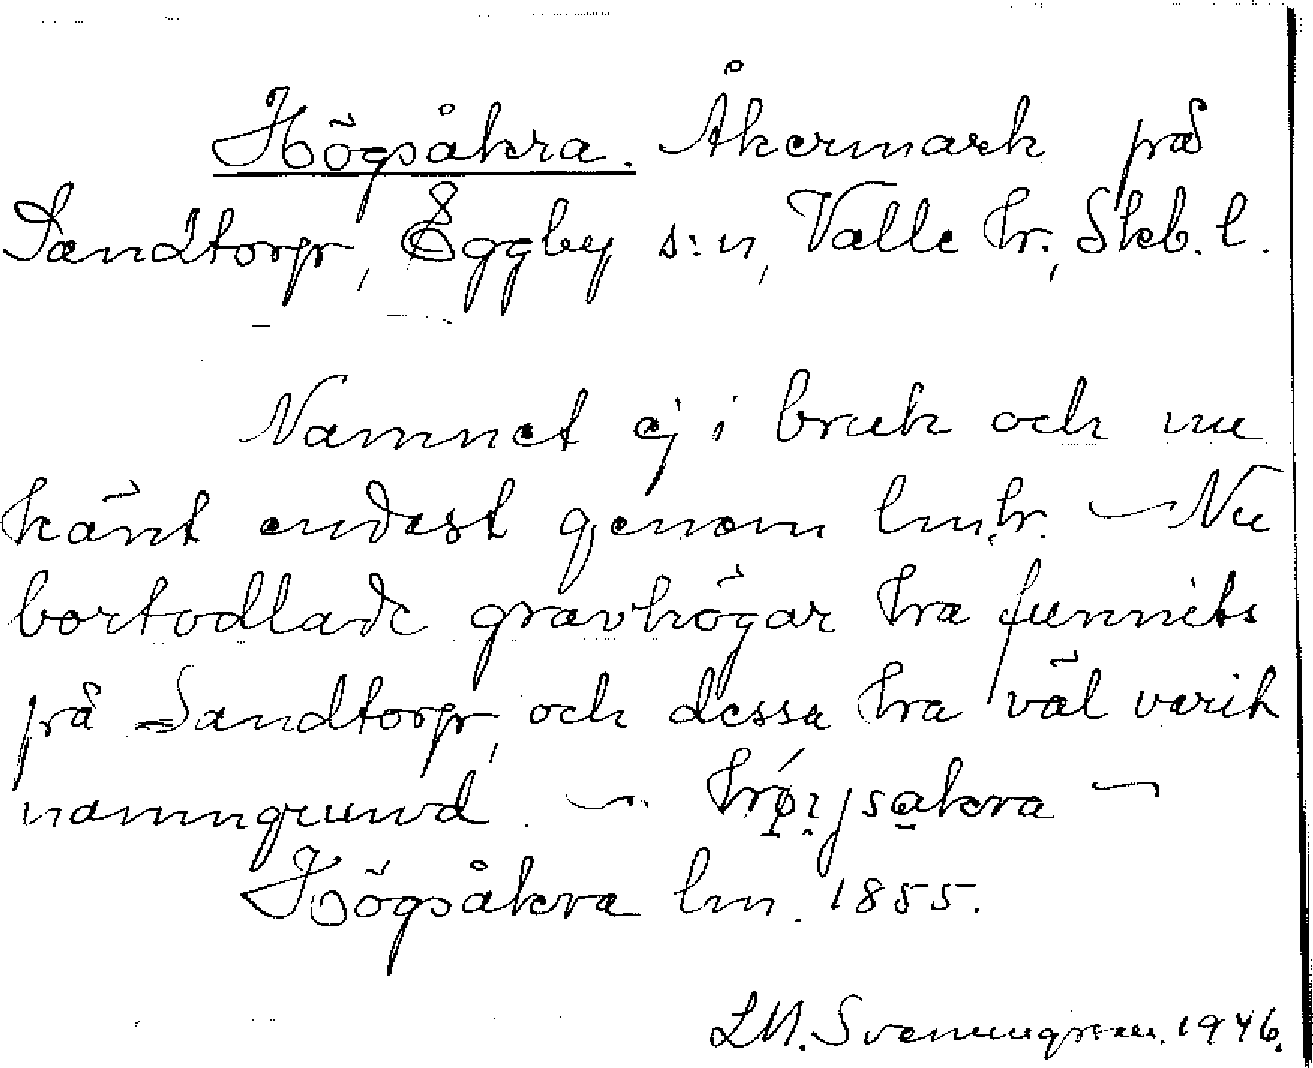 Högsåkra. Åkermark på
Sandtorp, Eggby s:n, Valle hr., Skb. l.
Namnet ej i bruk och nu
känt endast genom lm.hr. – Nu
bortodlade gravhögar ha funnits
på Sandtorp, och dessa ha väl varit
namngrund. –
Högsåkra lm. 1855.
1946.